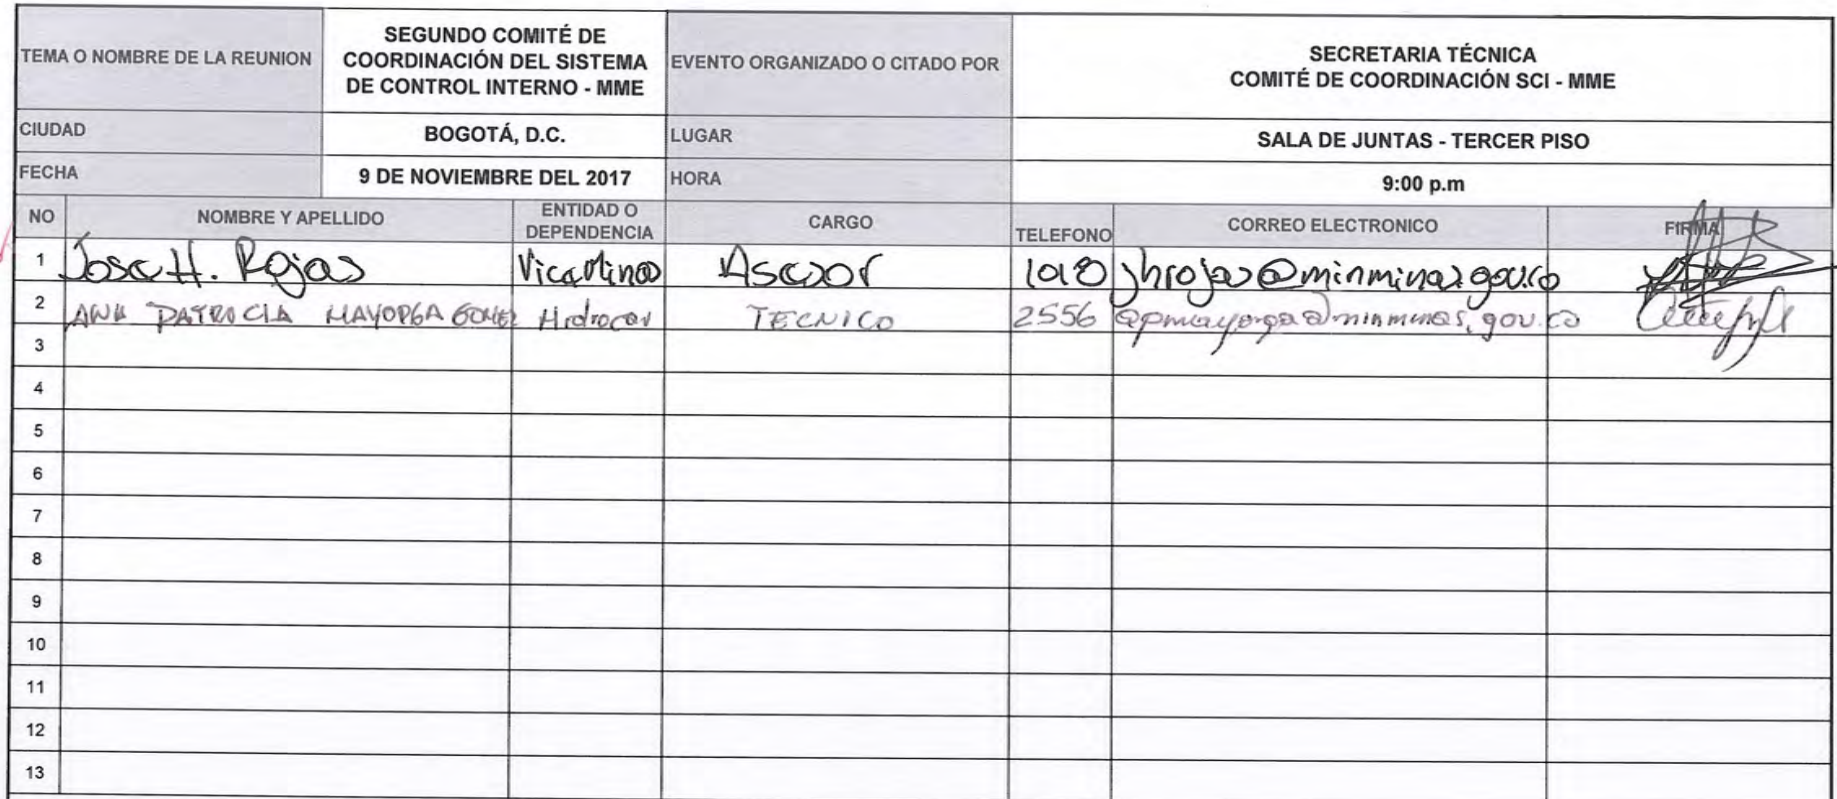 TEMA O NOMBRE DE LA REUNION
SEGUNDO COMITÉ DE
COORDINACIÓN DEL SISTEMA
DE CONTROL INTERNO - MME
EVENTO ORGANIZADO O CITADO POR
SECRETARIA TÉCNICA
COMITÉ DE COORDINACIÓN SCI - MME
CIUDAD
BOGOTÁ, D.C.
LUGAR
SALA DE JUNTAS - TERCER PISO
FECHA
9 DE NOVIEMBRE DEL 2017
HORA
9:00 p.m
NO
NOMBRE Y APELLIDO
ENTIDAD O
DEPENDENCIA
CARGO
TELEFONO
CORREO ELECTRONICO
FIRMA
1 Jose H. Rojas Viceminas Asesor jhrojas@minminas.gov.co
2 ANA PATRICIA MAYORGA GOMEZ Hidrocar TECNICO 2556 apmayorga@minminas.gov.co
3
4
5
6
7
8
9
10
11
12
13